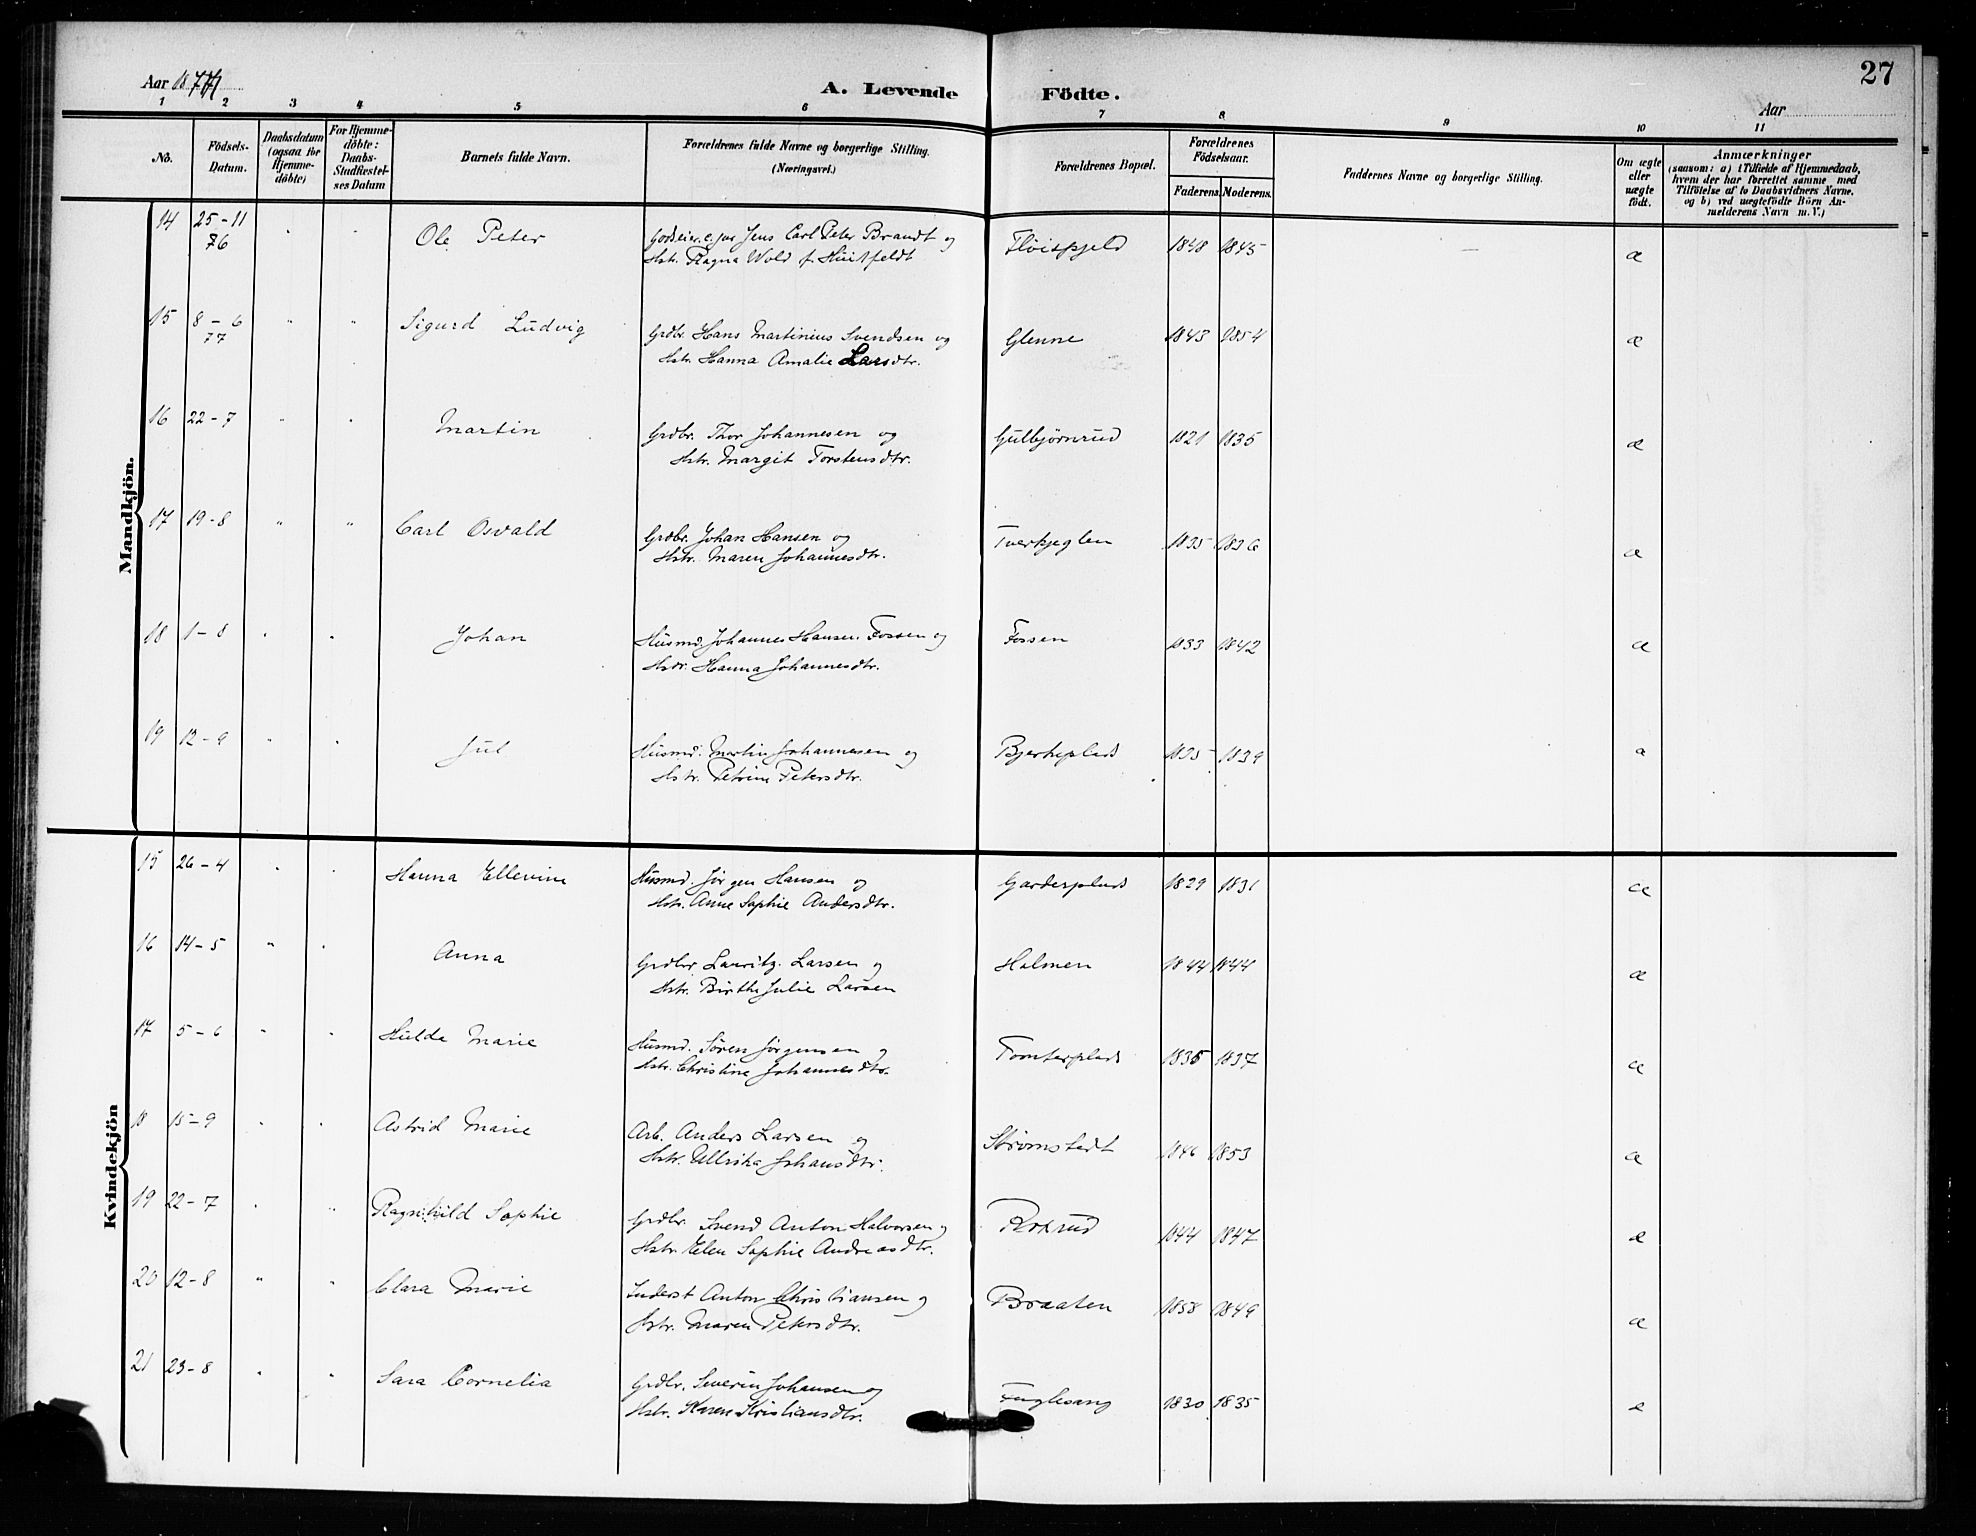 27
Aar 1877
A. Levende Födte.
Aar
1 2 3 4 5 6 7 8 9 10 11
No.
Födsels-Datum.
Daabsdatum (ogsaa for Hjemme-döbte)
For Hjemme-döbte: Daabs-Stadfæstel-ses Datum
Barnets fulde Navn.
Forældrenes fulde Navne og borgerlige Stilling. (Næringsvei.)
Forældrenes Bopæl.
Forældrenes Födselsaar.
Faderens. Moderens.
Faddernes Navne og borgerlige Stilling.
Om ægte eller uægte födt.
Anmærkninger
(saasom: a) i Tilfælde af Hjemmedaab,
hvem der har forrettet samme med
Tilföielse af to Daabsvidners Navne.
og b) ved uægtefödte Börn An-
melderens Navn m. V.)
Mandkjön.
14 25-11 76 " " Ole Peter Godseier, c. jur Jens Carl Peter Brandt og Fløispjeld 1848 1845 — æ
Hstr. Ragna Wold f. Huitfeldt
15 8-6 77 " " Sigurd Ludvig Grdbr. Hans Martinius Svendsen og Glenne 1843 1854 æ
Hstr. Hanna Amalie Larsdtr.
16 22-7 " " Martin Grdbr. Thor Johannesen og Gulbjørnrud 1821 1835 æ
Hstr. Margit Torstensdtr.
17 19-8 " " Carl Osvald Grdbr. Johan Hansen og Tverkjeglen 1835 1836 æ
Hstr. Maren Johannesdtr.
18 1-8 " " Johan Husmd. Johannes Hansen Fossen og Fossen 1833 1842 æ
Hstr. Hanna Johannesdtr.
19 12-9 " " Jul Husmd. Martin Johannesen og Bjerkeplads 1835 1839 æ
Hstr. Petrine Petersdtr.
Kvindekjön
15 26-4 " " Hanna Ellevine Husmd. Jørgen Hansen og Garderplads 1829 1831 æ
Hstr. Anne Sophie Andersdtr.
16 14-5 " " Anna Grdbr. Lauritz Larsen og Holmen 1844 1844 æ
Hstr. Birthe Julie Larsen
17 5-6 " " Hulda Marie Husmd. Søren Jørgensen og Tomterplads 1835 1837 æ
Hstr. Christine Johannesdtr.
18 15-9 " " Astrid Marie Arb. Anders Larsen og Strømstedt 1846 1853 æ
Hstr. Ullrika Johansdtr.
19 22-7 " " Ragnhild Sophie Grdbr. Svend Anton Halvorsen og 1844 1847 æ
Hstr. Elen Sophie Andreasdtr.
20 12-8 " " Clara Marie Inderst Anton Christiansen og Braaten 1858 1849 æ
Hstr. Maren Petersdtr.
21 23-8 " " Sara Cornelia Grdbr. Severin Johansen og Fuglesang 1830 1835 æ
Hstr. Karen Kristiansdtr.